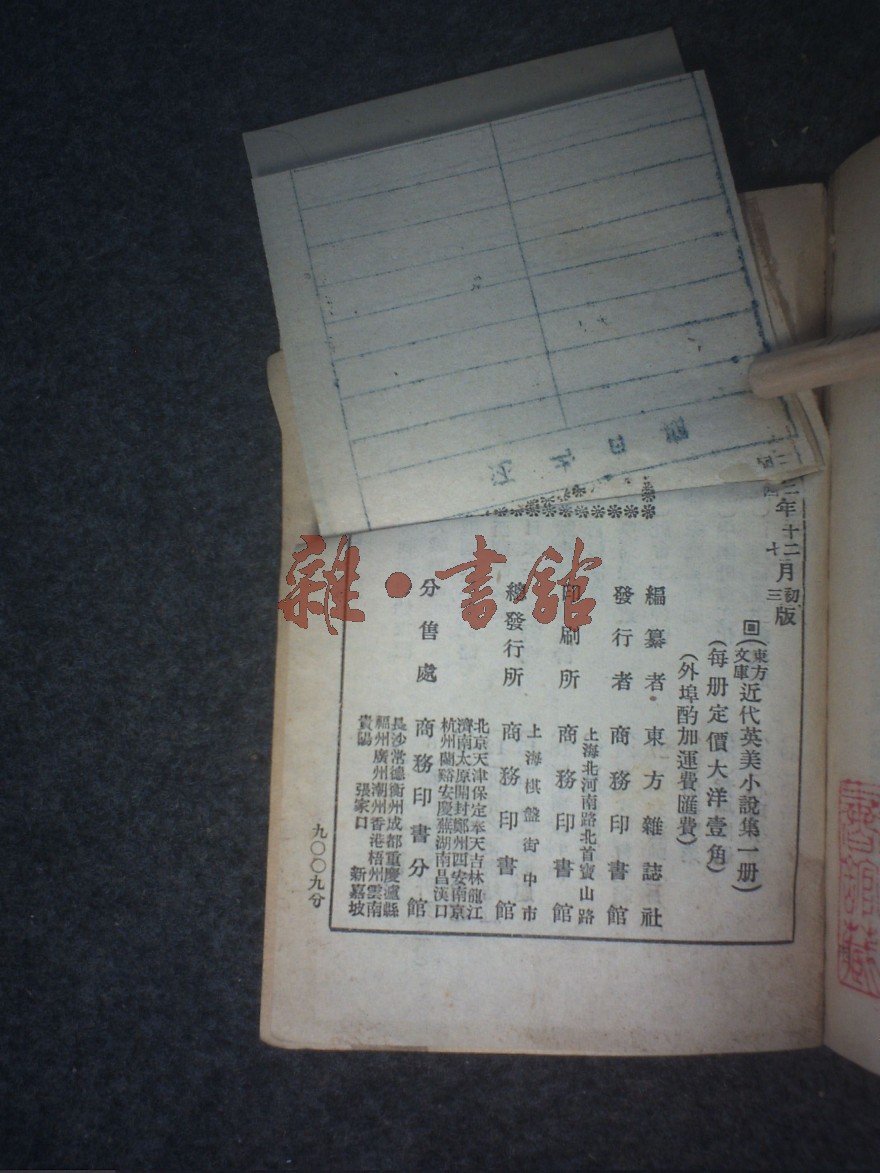 二年十二月初版
十月三版
回(東方文庫)近代英美小說集一册)
(每册定價大洋壹角)
(外埠酌加運費匯費)
編纂者 東方雜誌社
發行者 商務印書館
上海北河南路北首寶山路
印刷所 商務印書館
上海棋盤街中市
總發行所 商務印書館
分售處 商務印書分館
北京天津保定奉天吉林龍江
濟南太原開封鄭州西安南京
杭州蘭谿安慶蕪湖南昌漢口
長沙常德衡州成都重慶瀘縣
福州廣州潮州香港梧州雲南
貴陽 張家口 新嘉坡
九〇〇九分
雜·書館